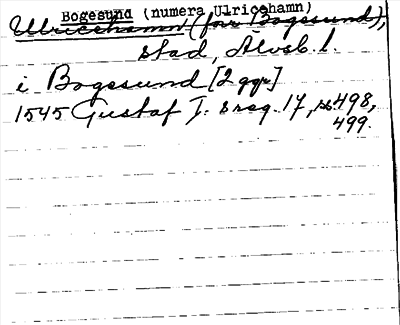 Bogesund (numera Ulricehamn)
Ulricehamn (förr Bogesund),
stad, Älvsb. l.
i Bogesund [2 ggr]
1545 Gustaf I: s reg. 17, s. 498,
499.